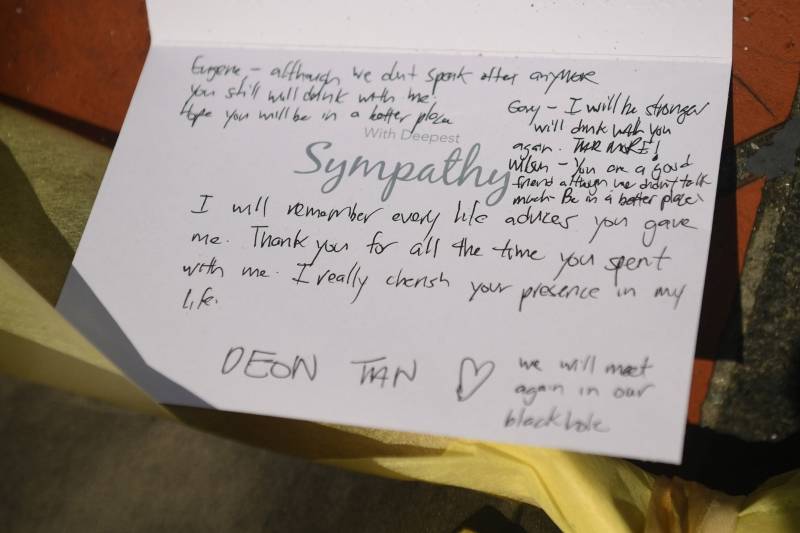 Eugene - although we dont speak often anymore
you still will drink with me!
Hope you will be in a better place
With Deepest
Sympathy
Gary - I will be stronger
will drink with you
again.
Wilson - You are a good
friend although we didn't talk
much. Be in a better place
I will remember every life advices you gave
me. Thank you for all the time you spent
with me. I really cherish your presence in my
life.
DEON TAN ♡
we will meet
again in our
blackhole